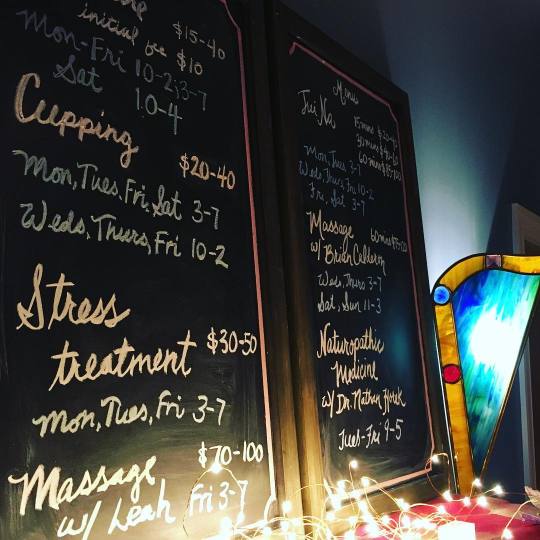 $15-40
initial fee $10
Mon-Fri 10-2; 3-7
Sat 10-4
Cupping
$20-40
Mon, Tues, Fri, Sat 3-7
Weds, Thurs, Fri 10-2
Stress
treatment $30-50
Mon, Tues, Fri 3-7
Massage $70-100
w/ Leah Fri 3-7
Menu
Tui Na
Mon, Tues 3-7
Weds, Thurs, Fri 10-2
Fri, Sat 3-7
Massage 60mins
w/ Brian Calderon
Weds, Thurs 3-7
Sat, Sun 11-3
Naturopathic
Medicine
w/ Dr. Nathan
Tues-Fri 9-5